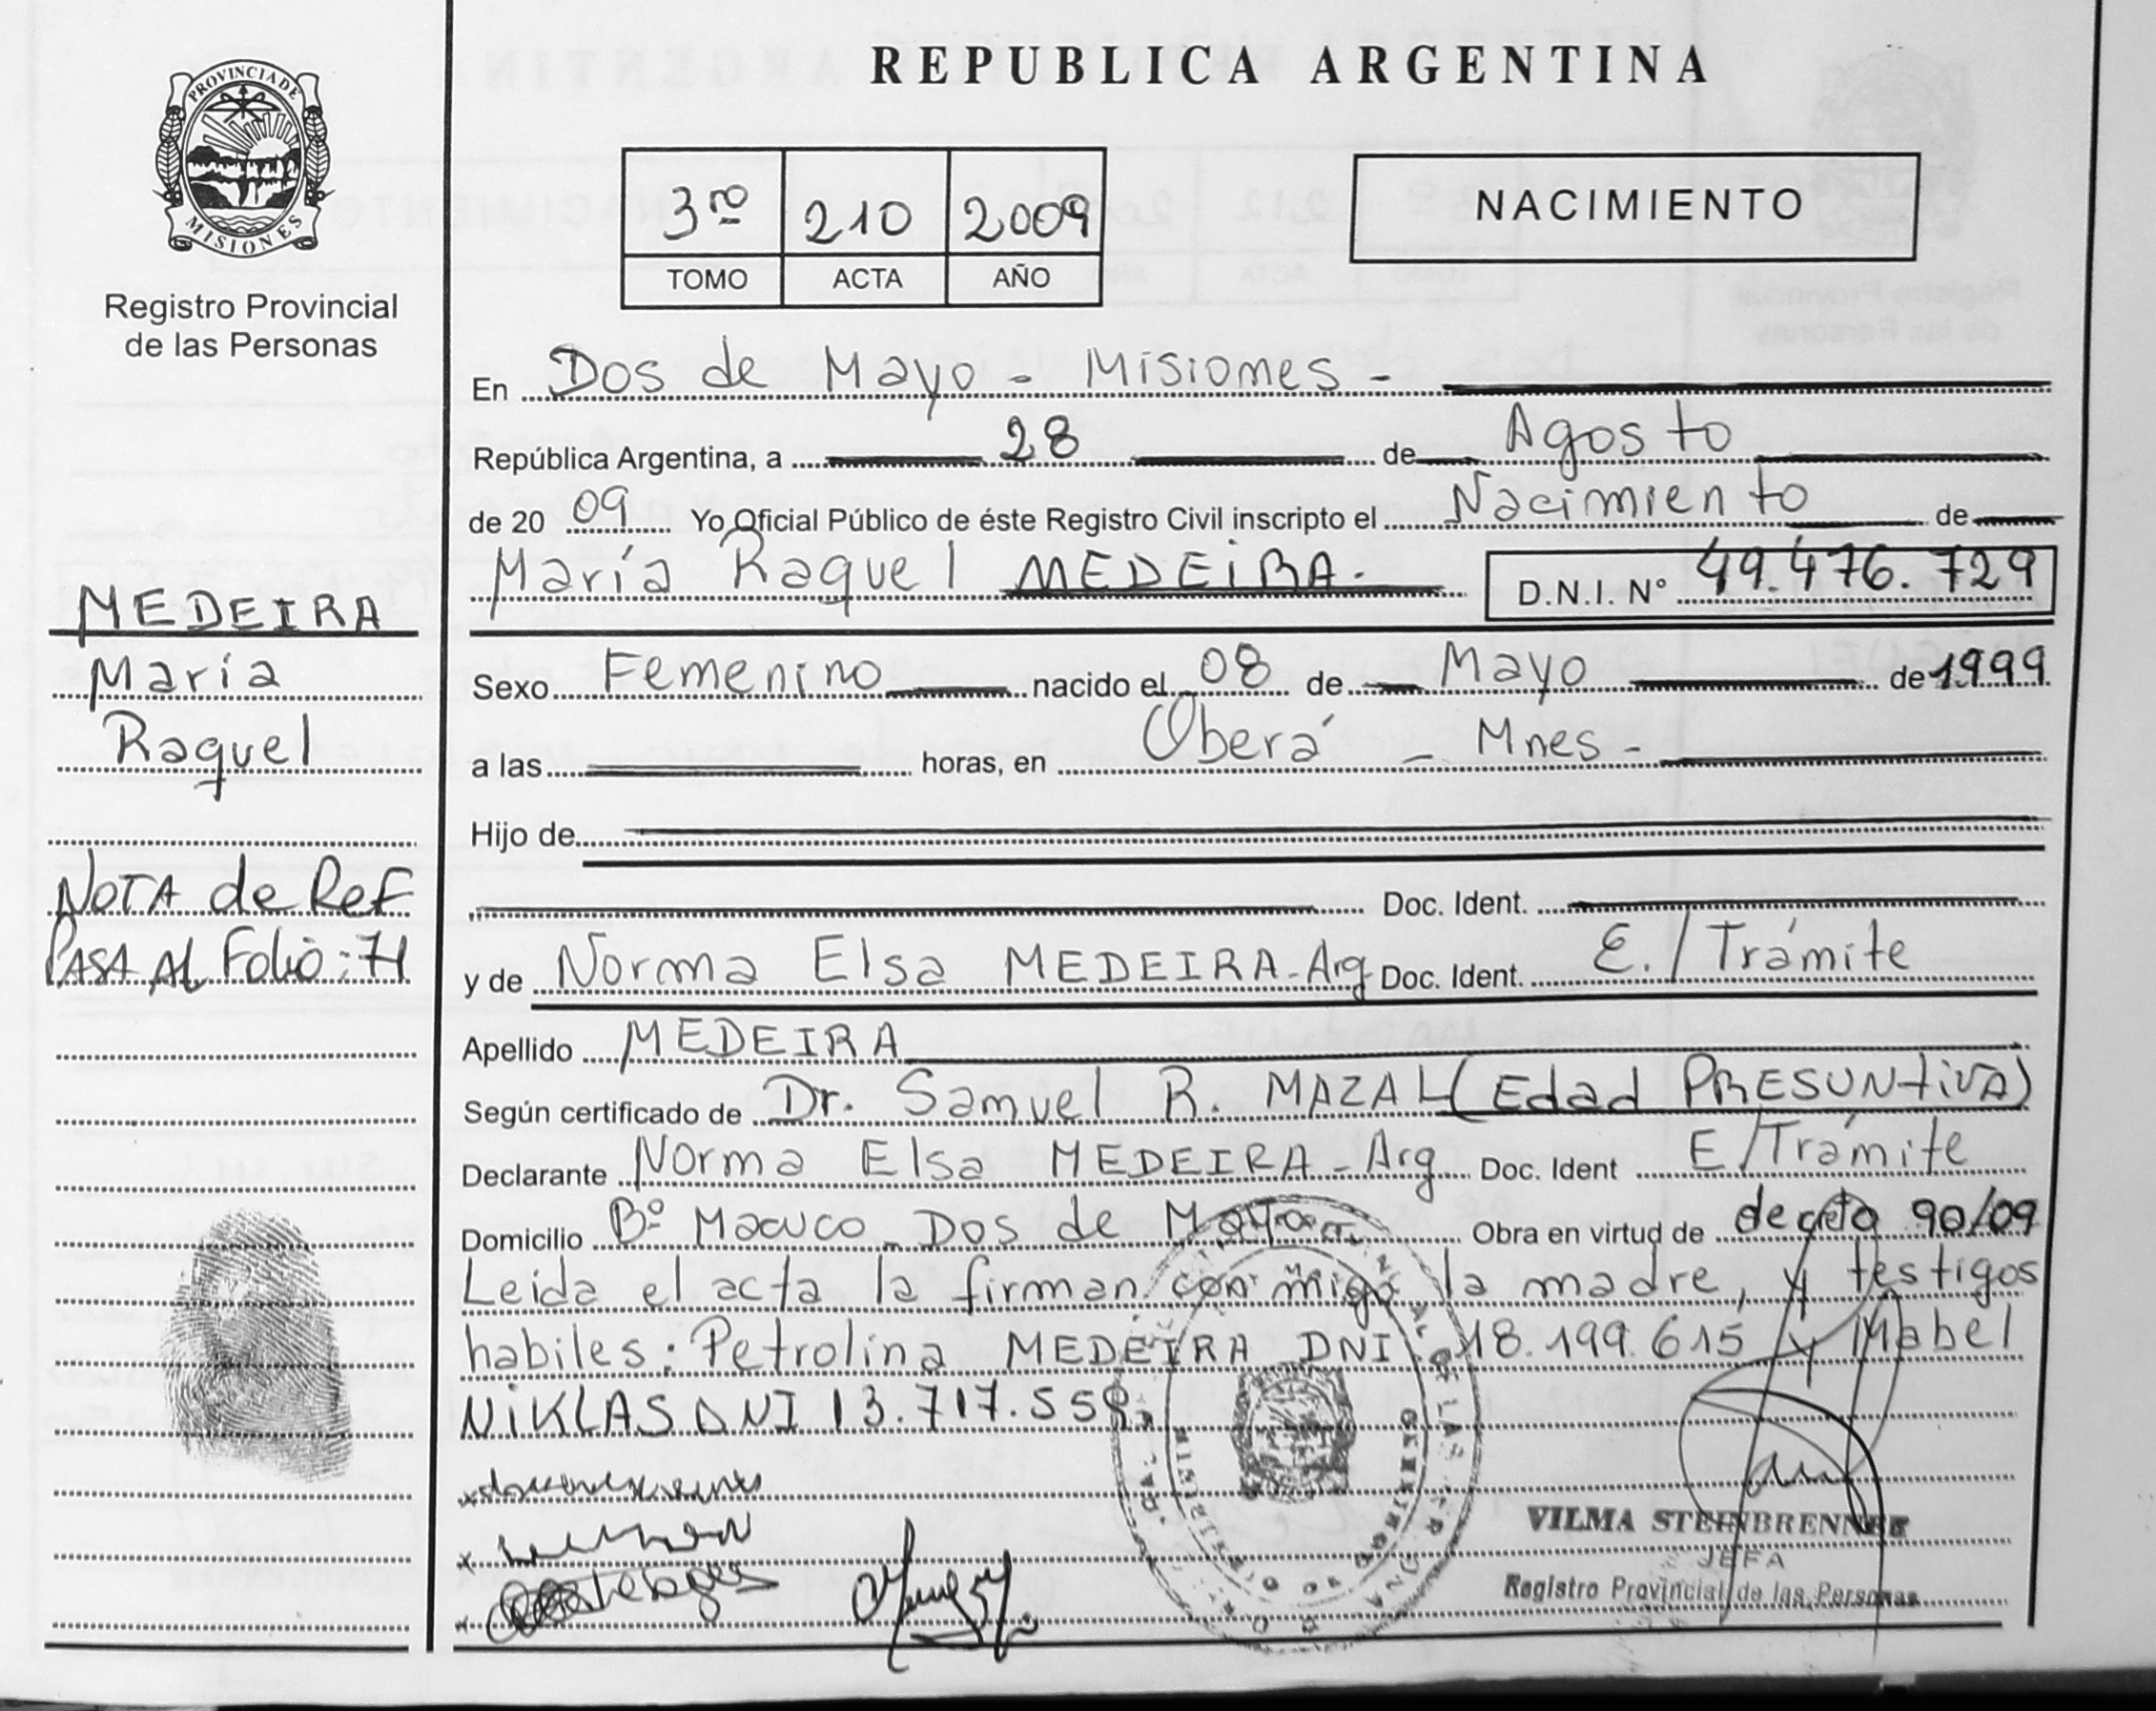 PROVINCIA DE
MISIONES
Registro Provincial
de las Personas
MEDEIRA
María
Raquel
NOTA de Ref
PASA AL Folio: 71
REPUBLICA ARGENTINA
3ro 210 2009
TOMO ACTA AÑO
NACIMIENTO
En Dos de Mayo - Misiones -
República Argentina, a 28 de Agosto
de 20 09 Yo Oficial Público de éste Registro Civil inscripto el Nacimiento de
María Raquel MEDEIRA. D.N.I. Nº 49.476.729
Sexo Femenino nacido el 08 de Mayo de 1999
a las horas, en Oberá - Mnes -
Hijo de
Doc. Ident.
y de Norma Elsa MEDEIRA - Arg Doc. Ident. E./Trámite
Apellido MEDEIRA
Según certificado de Dr. Samuel R. MAZAL (Edad PRESUNTIVA)
Declarante Norma Elsa MEDEIRA - Arg Doc. Ident E/Trámite
Domicilio Bº Macuco - Dos de Mayo Obra en virtud de decreto 90/09
Leida el acta la firman con migo la madre, y testigos
habiles: Petrolina MEDEIRA DNI 18.199.615 y Mabel
NIKLAS DNI 13.717.558.
VILMA STEINBRENNER
JEFA
Registro Provincial de las Personas